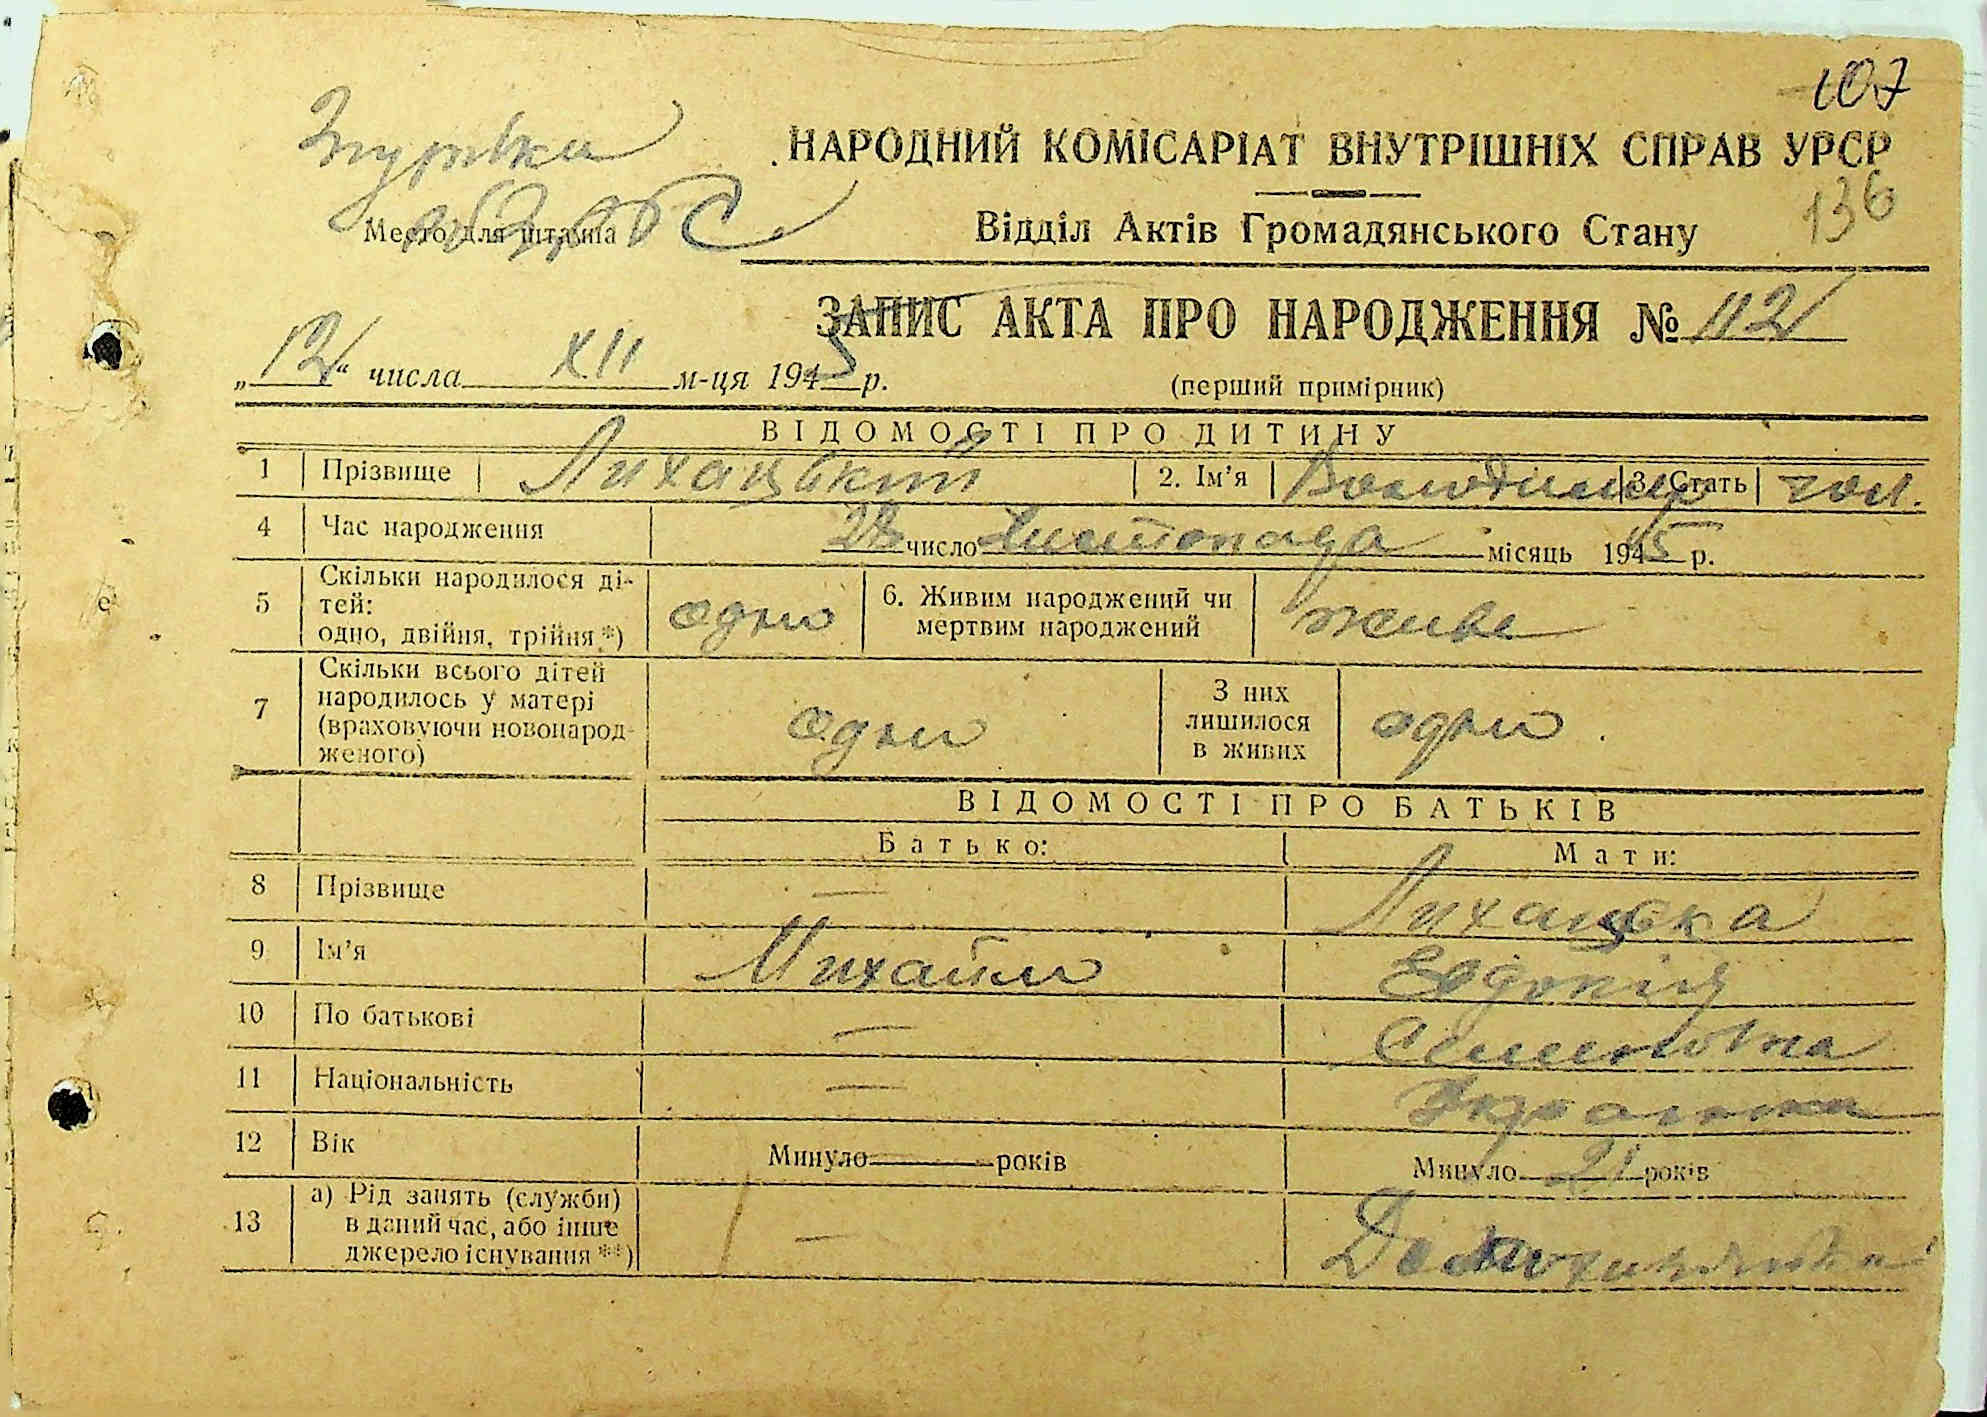 107
Згурівка
НАРОДНИЙ КОМІСАРІАТ ВНУТРІШНІХ СПРАВ УРСР
136
Место для штампа
Відділ Актів Громадянського Стану
ЗАПИС АКТА ПРО НАРОДЖЕННЯ № 112
„12“ числа XII м-ця 1945 р.
(перший примірник)
ВІДОМОСТІ ПРО ДИТИНУ
1 Прізвище Лихацький 2. Ім'я Володимир 3. Стать чол.
4 Час народження 28 число Листопада місяць 1945 р.
5 Скільки народилося ді-
тей:
одно, двійня, трійня *) одно 6. Живим народжений чи
мертвим народжений живе
7 Скільки всього дітей
народилось у матері
(враховуючи новонарод-
женого) одно З них
лишилося
в живих одно
ВІДОМОСТІ ПРО БАТЬКІВ
Батько: Мати:
8 Прізвище — Лихацька
9 Ім'я Михайло Евдокія
10 По батькові — Семеновна
11 Національність — Українка
12 Вік Минуло — років Минуло 21 років
13 а) Рід занять (служби)
в даний час, або інше
джерело існування **) —